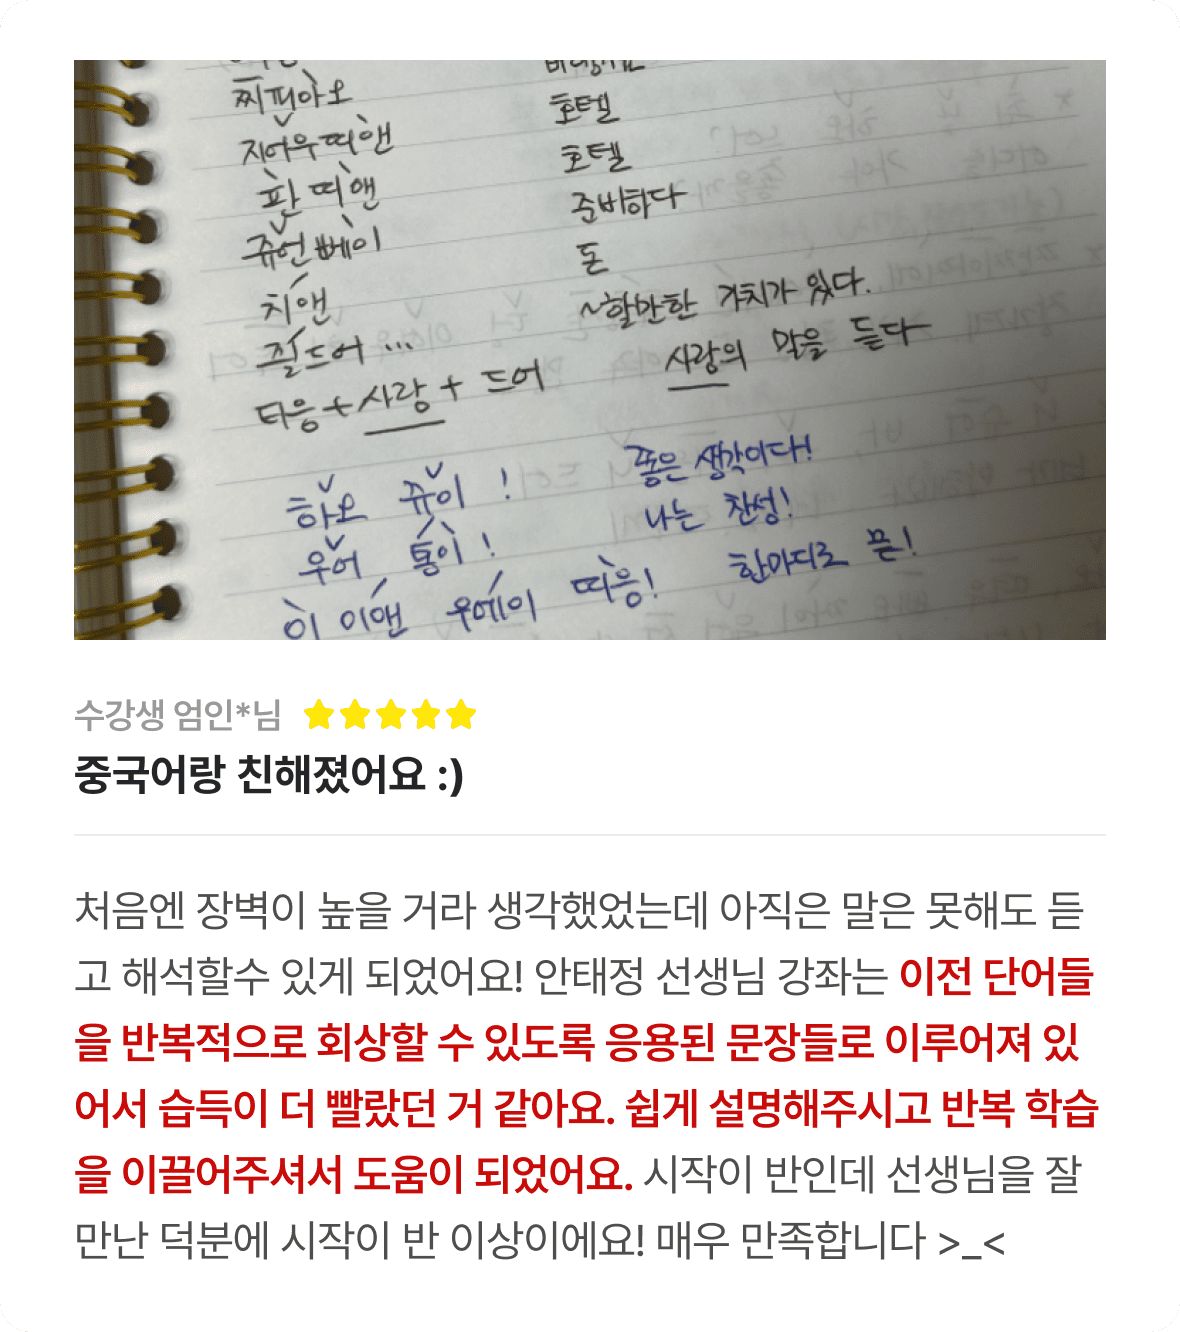 찌피아오
지어우띠앤 호텔
판띠앤 호텔
쥰언뻬이 준비하다
치앤 돈
즬드어 ... ~할만한 가치가 있다.
티응 + 사랑 + 드어 사랑의 말을 듣다
하오 쥬이 ! 좋은 생각이다!
우어 통이 ! 나는 찬성!
이 이앤 우에이 띠응! 한마디로 끝!
수강생 엄인*님
중국어랑 친해졌어요 :)
처음엔 장벽이 높을 거라 생각했었는데 아직은 말은 못해도 듣
고 해석할수 있게 되었어요! 안태정 선생님 강좌는 이전 단어들
을 반복적으로 회상할 수 있도록 응용된 문장들로 이루어져 있
어서 습득이 더 빨랐던 거 같아요. 쉽게 설명해주시고 반복 학습
을 이끌어주셔서 도움이 되었어요. 시작이 반인데 선생님을 잘
만난 덕분에 시작이 반 이상이에요! 매우 만족합니다 >_<